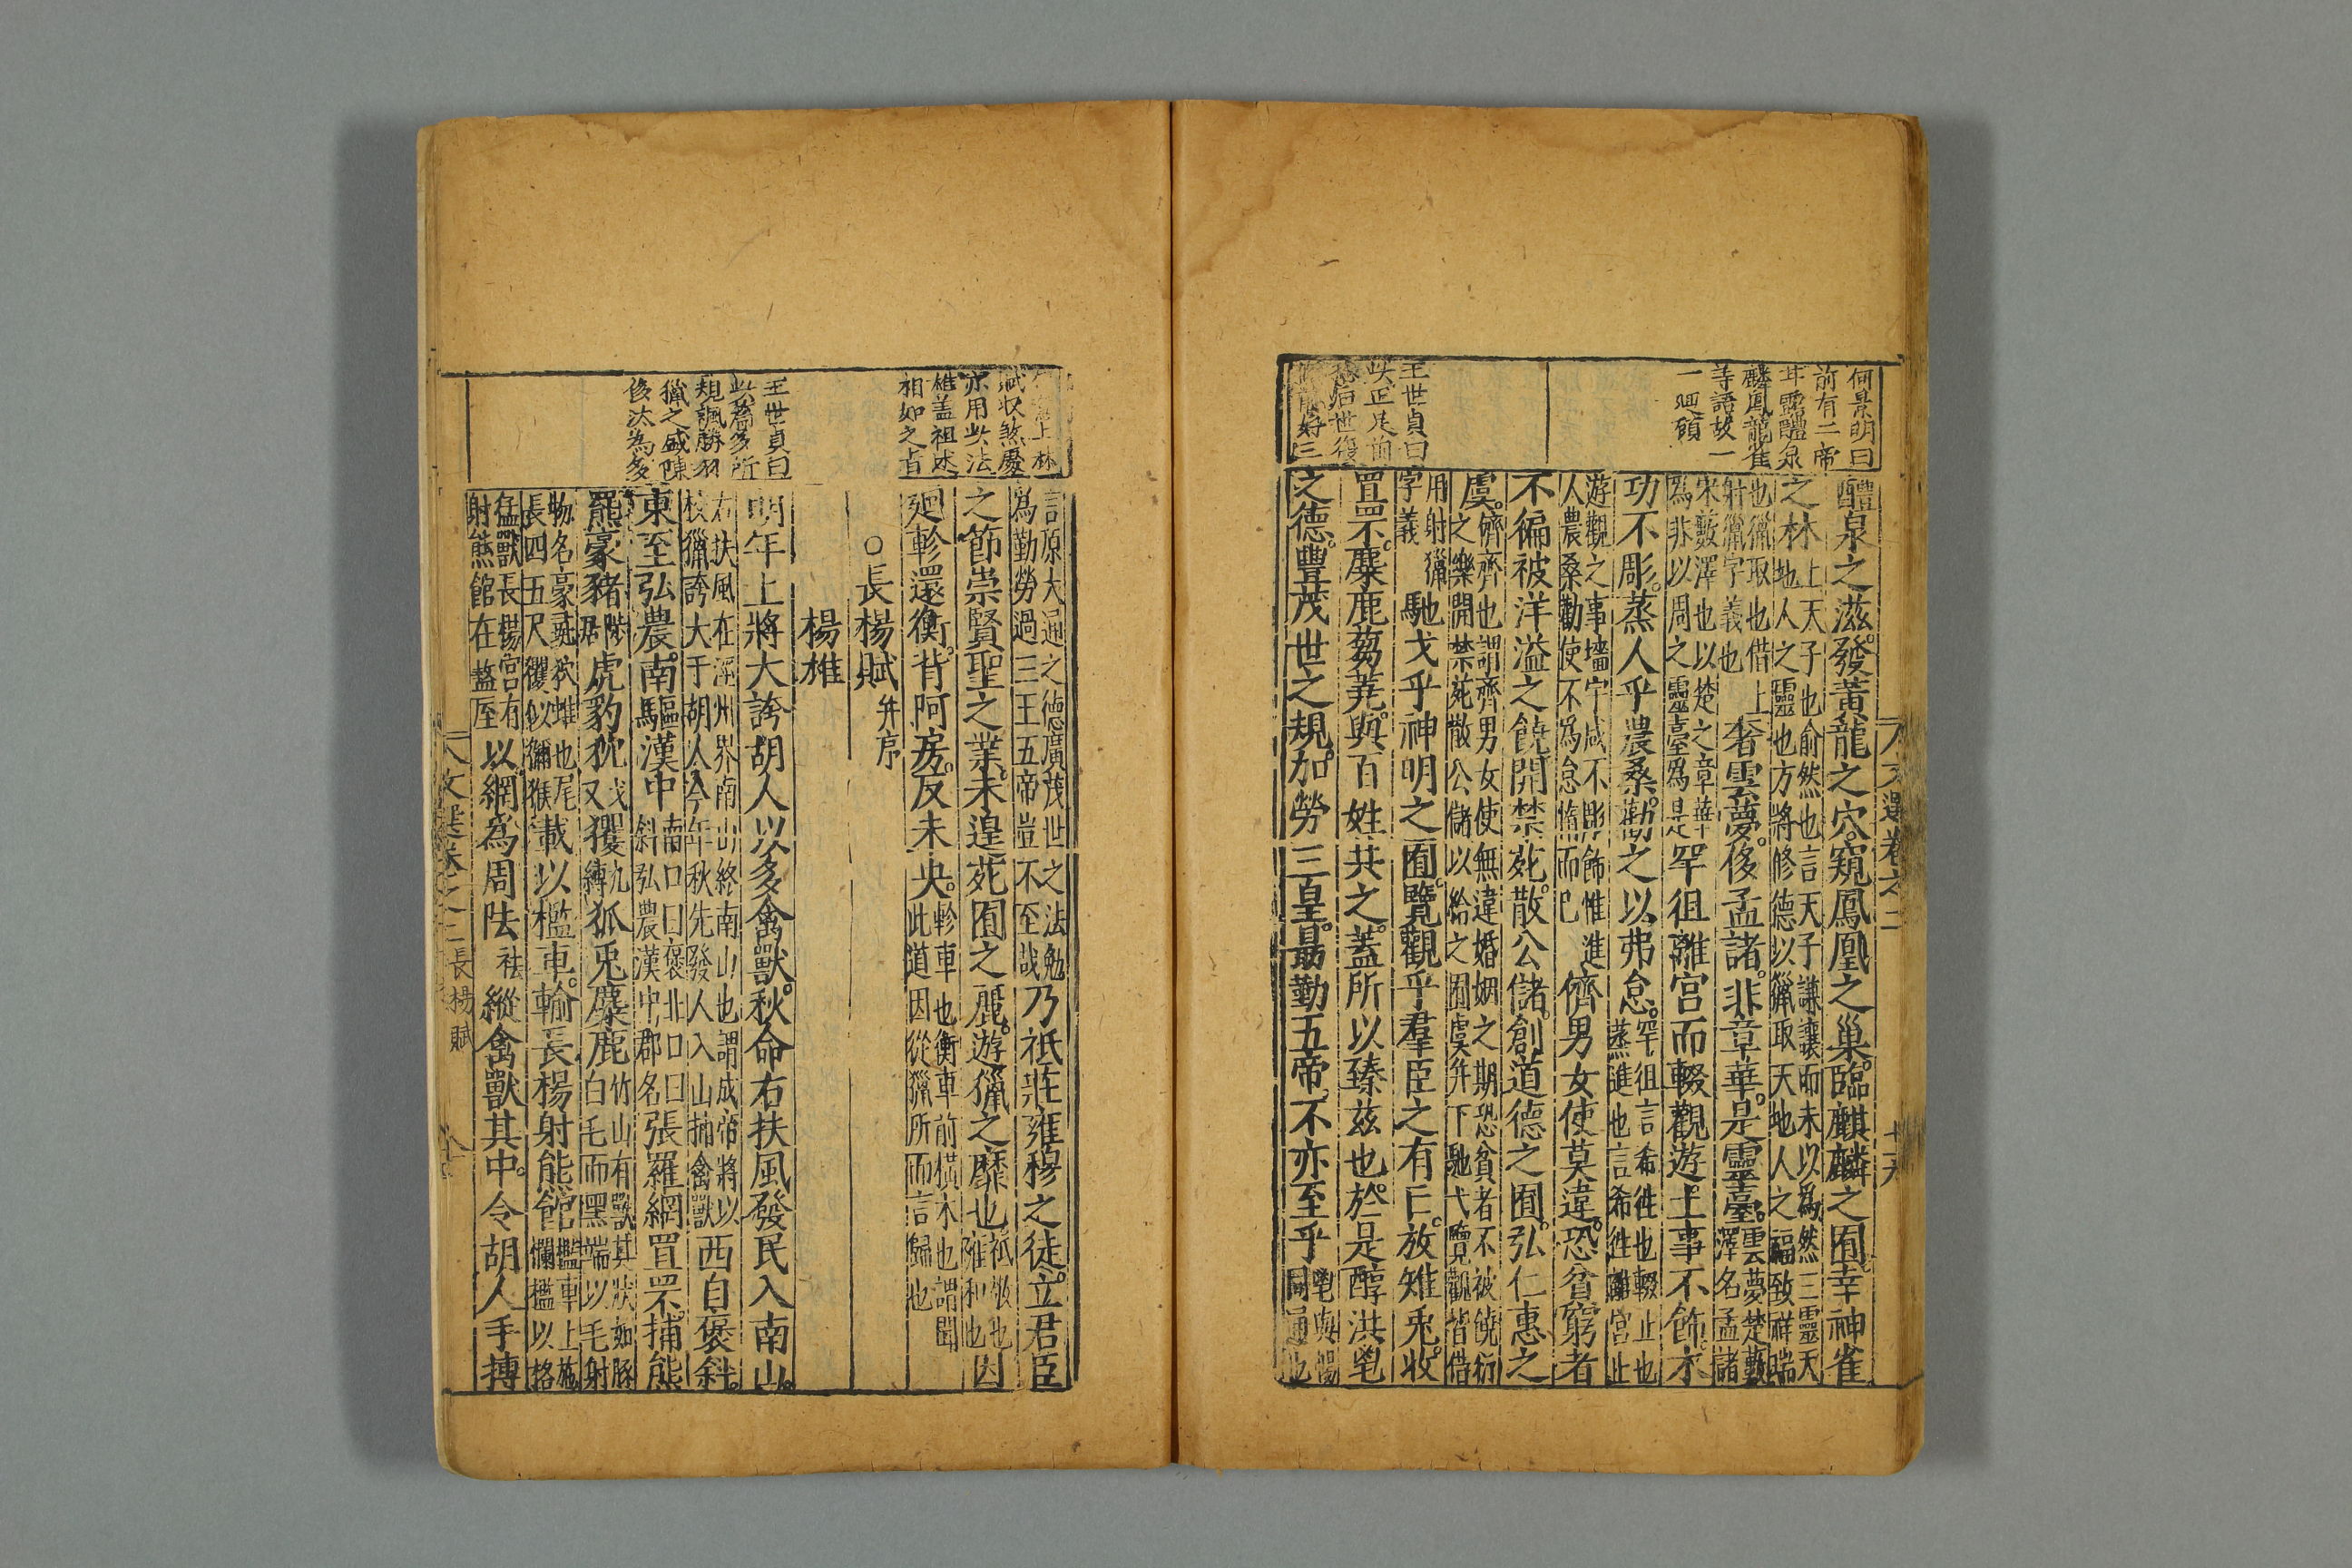 何景明曰
前有二帝
年露醴泉
麟鳳龍雀
等語故一
一廻顧
王世貞曰
此正是前
醴泉之滋發黃龍之穴窺鳳凰之巢臨麒麟之囿幸神雀
之林上天子也俞然也言天子謙讓而未以為然三靈天
地人之靈也方將修德以獵取天地人之福致祥瑞
也獵取也借上
射獵字義也
奢雲夢侈孟諸非章華是靈臺雲夢楚藪
澤名孟諸
宋藪澤也以楚之章華
為非以周之靈臺為是
罕徂離宮而輟觀遊土事不飾木
功不彫蒸人乎農桑勸之以弗怠罕徂言希徃也輟止也
蒸進也言希徃離宮止
游觀之事墻宇咸不彫飾惟進
人農桑勸使不為怠惰而已
儕男女使莫違恐貧窮者
不徧被洋溢之饒開禁苑散公儲創道德之囿弘仁惠之
虞儕齊也謂齊男女使無違婚姻之期恐貧者不被饒衍
之樂開禁苑散公儲以給之囿虞并下馳弋覽觀皆借
用射獵
字義
馳弋乎神明之囿覽觀乎羣臣之有亡放雉兎收
罝罘麋鹿芻蕘與百姓共之蓋所以臻茲也於是醇洪鬯
之德豐茂世之規加勞三皇勗勤五帝不亦至乎鬯與暢
同通也
文選卷之二
賦收煞處
亦用此法
雄蓋祖述
相如之旨
王世貞曰
此篇多所
規諷勝羽
獵之盛陳
侈汰為多
言原大通之德廣茂世之法勉
為勤勞過三王五帝豈不至哉
乃祗莊雍穆之徒立君臣
之節崇賢聖之業未遑苑囿之麗遊獵之靡也祗敬也
雍和也
因
廻軫還衡背阿房反未央軫車也衡車前橫木也謂聞
此道因從獵所而言歸也
○長楊賦并序
楊雄
明年上將大誇胡人以多禽獸秋命右扶風發民入南山
右扶風在涇州界南山終南山也謂成帝將以
校獵誇大于胡人今年秋先發人入山捕禽獸
西自褒斜
東至弘農南驅漢中南口曰褒北口曰
斜弘農漢中郡名
張羅網罝罘捕熊
羆豪豬虎豹狖又玃狐兎麋鹿竹山有獸其狀如豚
白毛而黑端以毛射
物名豪彘狖蜼也尾
長四五尺玃似獼猴
載以檻車輸長楊射熊館檻車上施
欄檻以格
猛獸長楊宮有
射熊館在盩厔
以網為周阹袪縱禽獸其中令胡人手搏
文選卷之二
長楊賦